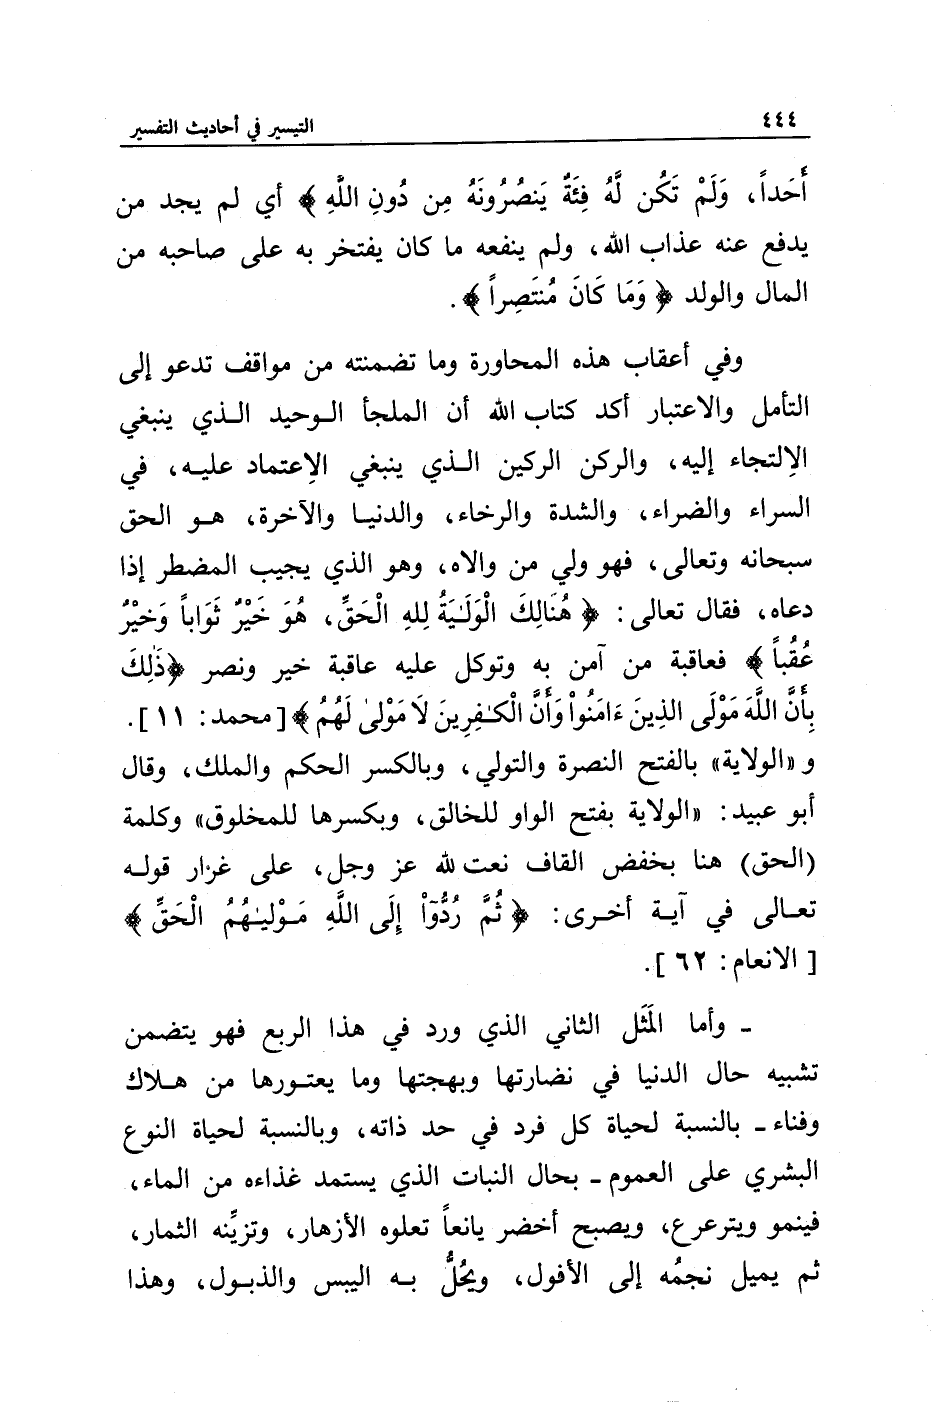 ٤٤٤
التيسير في أحاديث التفسير
أَحَداً، وَلَمْ تَكُن لَّهُ فِئَةٌ يَنصُرُونَهُ مِن دُونِ اللَّهِ ﴾ أي لم يجد من
يدفع عنه عذاب الله، ولم ينفعه ما كان يفتخر به على صاحبه من
المال والولد ﴿ وَمَا كَانَ مُنتَصِراً ﴾.
وفي أعقاب هذه المحاورة وما تضمنته من مواقف تدعو إلى
التأمل والاعتبار أكد كتاب الله أن الملجأ الوحيد الذي ينبغي
الإلتجاء إليه، والركن الركين الذي ينبغي الإعتماد عليه، في
السراء والضراء، والشدة والرخاء، والدنيا والآخرة، هو الحق
سبحانه وتعالى، فهو ولي من والاه، وهو الذي يجيب المضطر إذا
دعاه، فقال تعالى: ﴿ هُنَالِكَ الْوَلَـٰيَةُ لِلهِ الْحَقِّ، هُوَ خَيْرٌ ثَوَاباً وَخَيْرٌ
عُقُباً ﴾ فعاقبة من آمن به وتوكل عليه عاقبة خير ونصر ﴿ذَٰلِكَ
بِأَنَّ اللَّهَ مَوْلَى الذِينَ ءَامَنُواْ وَأَنَّ الْكَـٰفِرِينَ لَا مَوْلىٰ لَهُمُ ﴾ [ محمد: ١١ ].
و «الولاية» بالفتح النصرة والتولي، وبالكسر الحكم والملك، وقال
أبو عبيد: «الولاية بفتح الواو للخالق، وبكسرها للمخلوق» وكلمة
(الحق) هنا بخفض القاف نعت لله عز وجل، على غرار قوله
تعالى في آية أخرى: ﴿ ثُمَّ رُدُّوٓاْ إِلَى اللَّهِ مَوْلَيـٰهُمُ الْحَقِّ ﴾
[ الانعام: ٦٢ ].
ـ وأما المَثَل الثاني الذي ورد في هذا الربع فهو يتضمن
تشبيه حال الدنيا في نضارتها وبهجتها وما يعتورها من هلاك
وفناء ـ بالنسبة لحياة كل فرد في حد ذاته، وبالنسبة لحياة النوع
البشري على العموم ـ بحال النبات الذي يستمد غذاءه من الماء،
فينمو ويترعرع، ويصبح أخضر يانعاً تعلوه الأزهار، وتزيِّنه الثمار،
ثم يميل نجمُه إلى الأفول، ويحُلُّ به اليبس والذبول، وهذا